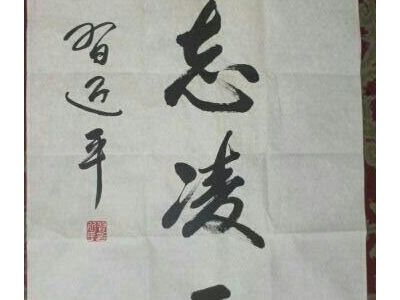 志凌
習近平